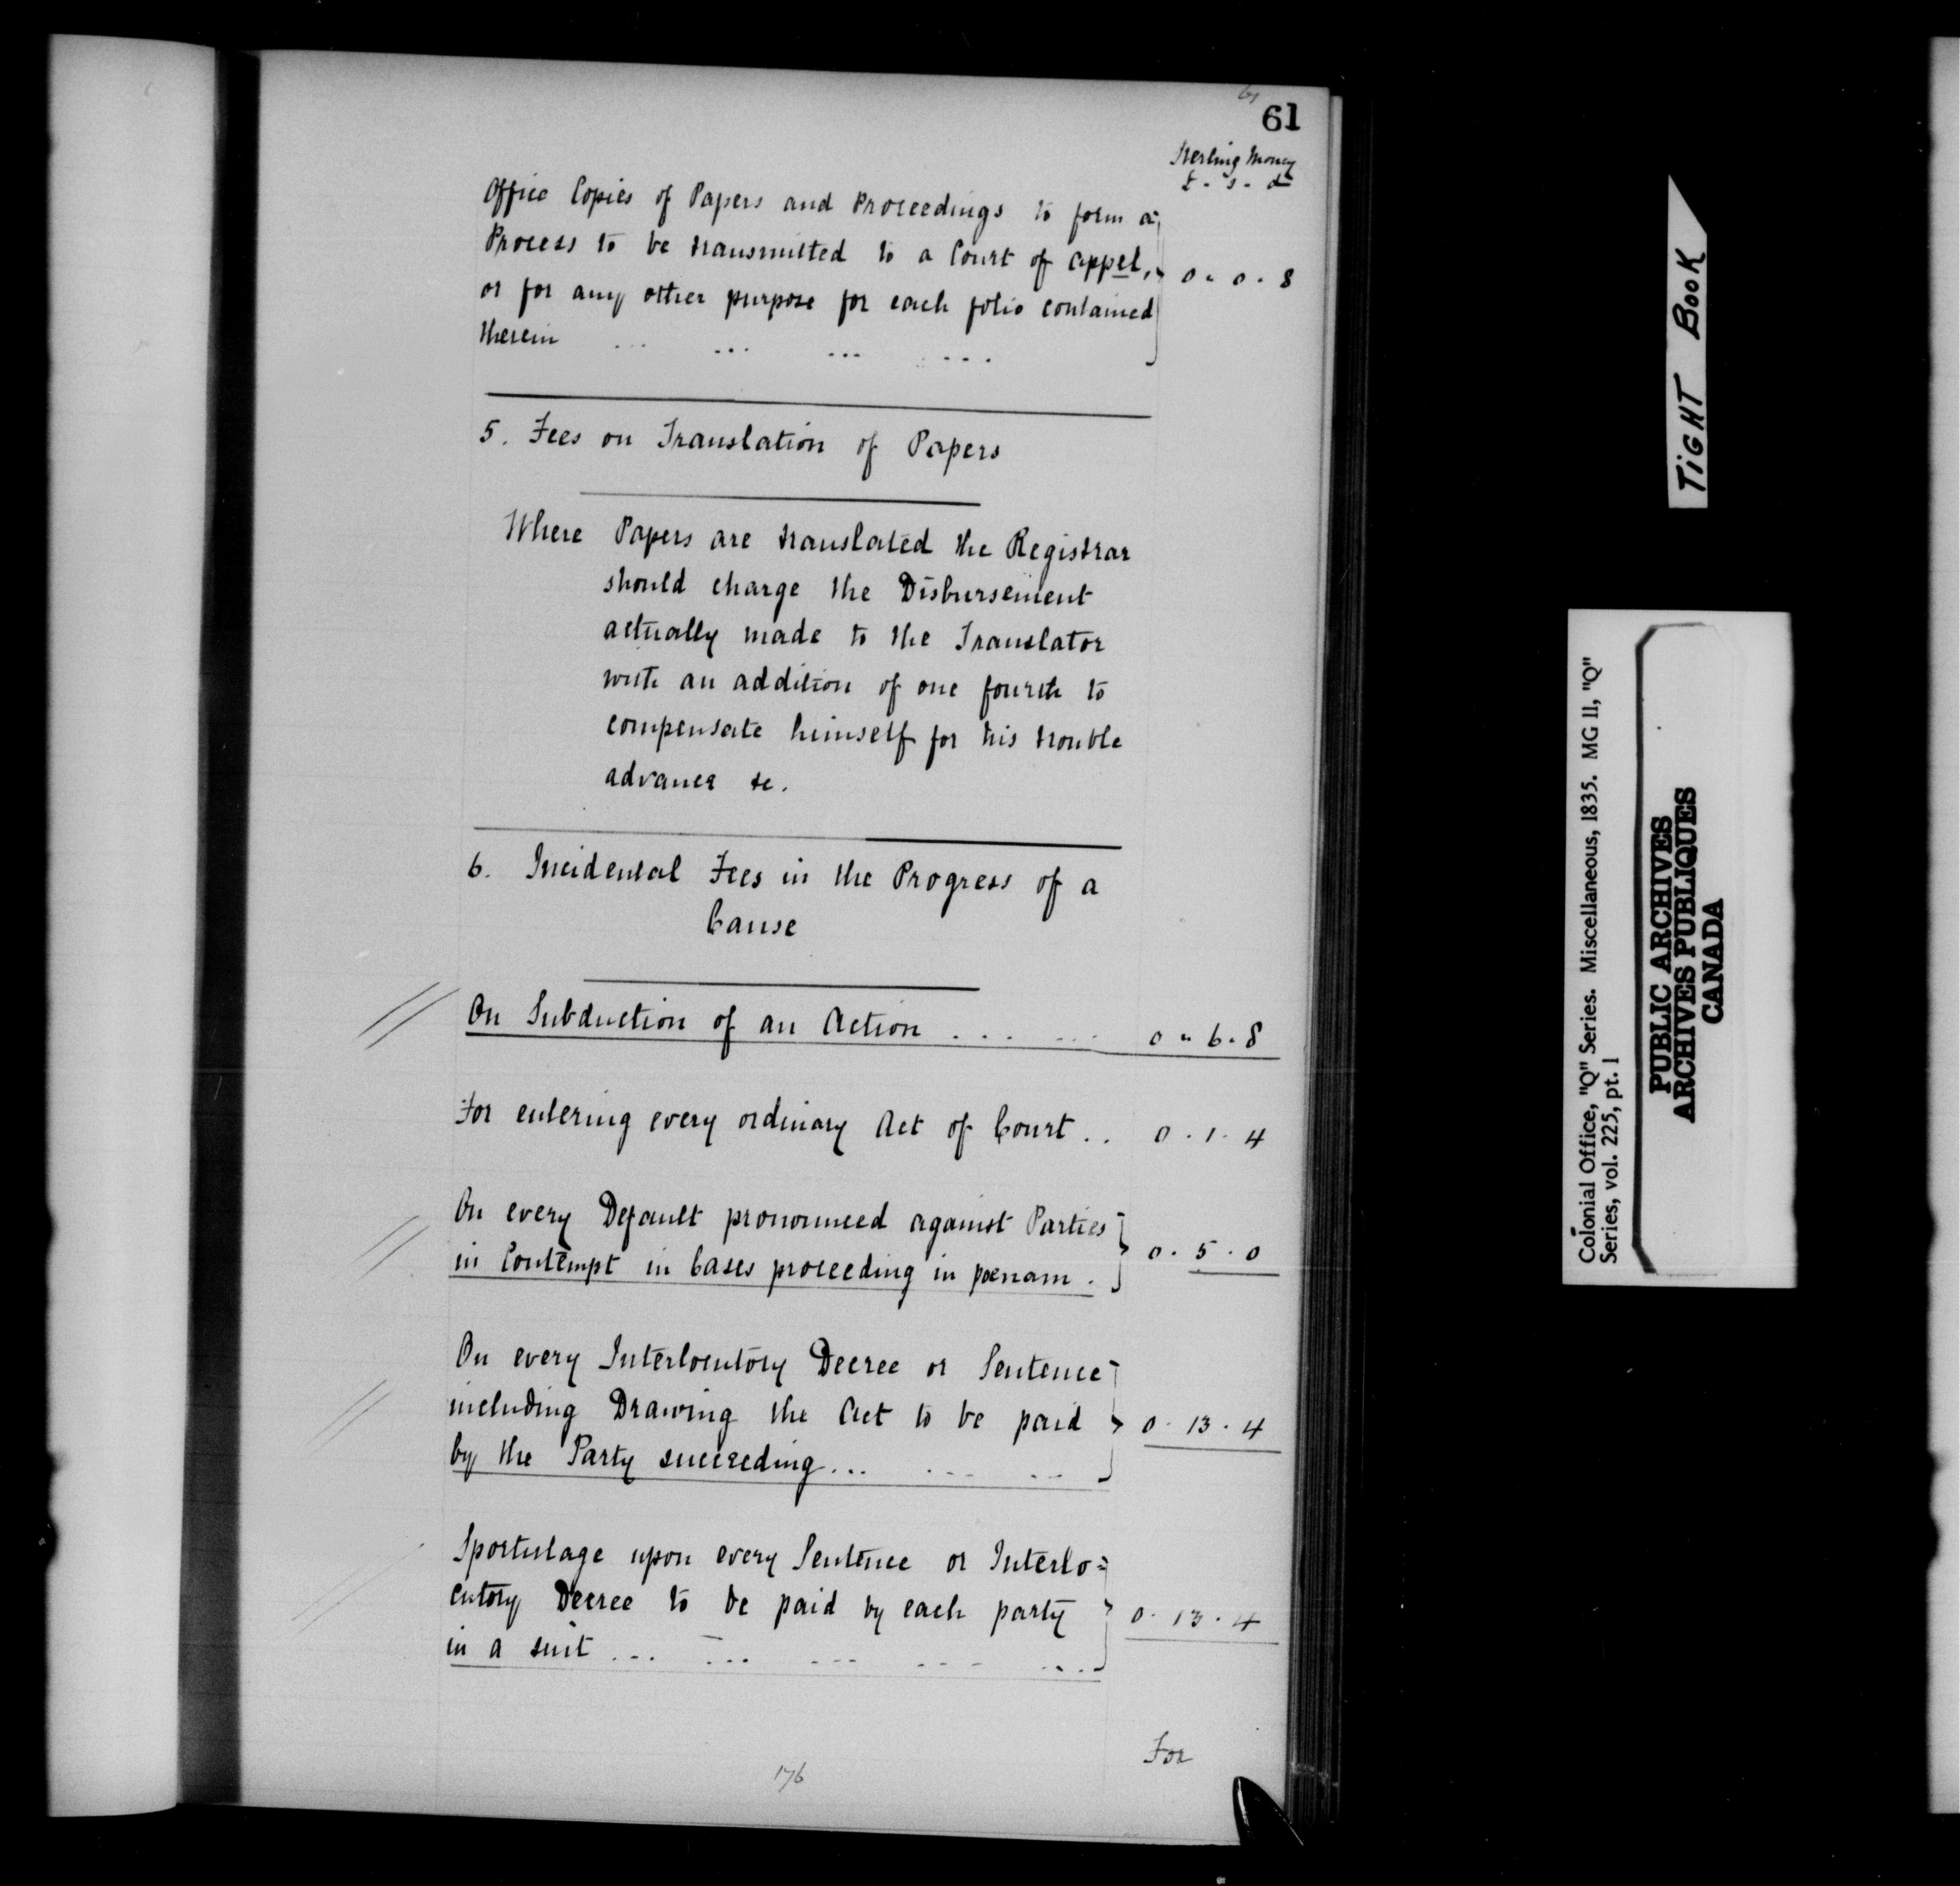 61
61
Sterling Money
£ - s - d
Office Copies of Papers and Proceedings to form a
Process to be transmitted to a Court of appel, 0 " 0 . 8
or for any other purpose for each folio contained
therein ... ... ... ...
5. Fees on Translation of Papers
Where Papers are translated the Registrar
should charge the Disbursement
actually made to the Translator
with an addition of one fourth to
compensate himself for his trouble
advance &c.
6. Incidental Fees in the Progress of a
Cause
On Subduction of an Action ... ... 0 " 6 . 8
For entering every ordinary Act of Court .. 0 . 1 . 4
On every Default pronounced against Parties
in Contempt in Cases proceeding in poenam . 0 . 5 . 0
On every Interlocutory Decree or Sentence
including Drawing the Act to be paid 0 . 13 . 4
by the Party succeeding ... ... ...
Sportulage upon every Sentence or Interlo=
cutory Decree to be paid by each party 0 . 13 . 4
in a suit ... ... ... ... ...
For
176
TIGHT BOOK
Colonial Office, "Q" Series. Miscellaneous, 1835. MG 11, "Q"
Series, vol. 225, pt. 1
PUBLIC ARCHIVES
ARCHIVES PUBLIQUES
CANADA